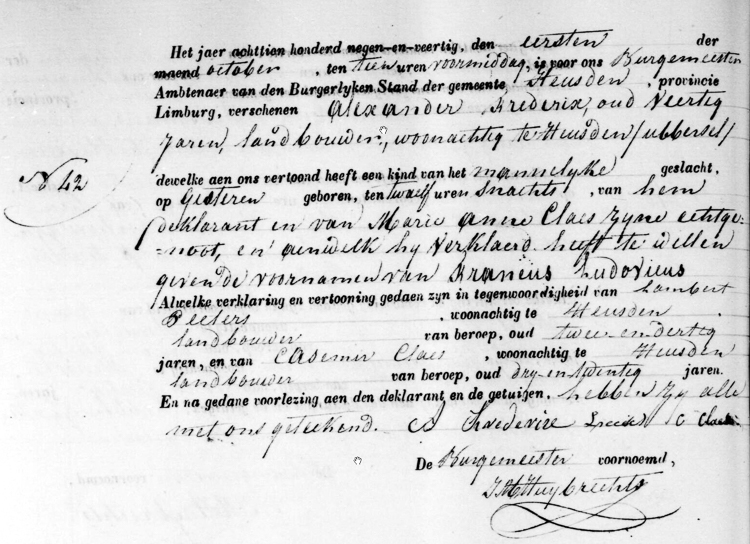 Het jaer achttien honderd negen-en-veertig, den eersten der
maend october, ten tien uren voormiddag, is voor ons Burgemeester
Ambtenaer van den Burgerlyken Stand der gemeente Heusden, provincie
Limburg, verschenen Alexander Frederix, oud veertig
Jaren, landbouwer, woonachtig te Heusden / ubbersel /
N 42
dewelke aen ons vertoond heeft een kind van het mannelyke geslacht,
op gisteren geboren, ten twalf uren snachts, van hem
deklarant en van Marie anne Claes zyne echtge-
noot, en aenwelk hy verklaerd heeft te willen
geven de voornamen van Francius Ludovicus
Alwelke verklaring en vertooning gedaen zyn in tegenwoordigheid van Lambert
Peeters, woonachtig te Heusden
landbouwer van beroep, oud twee-en-dertig
jaren, en van Casemir Claes, woonachtig te Heusden
landbouwer van beroep, oud dry-en-twentig jaren.
En na gedane voorlezing aen den deklarant en de getuigen, hebben zy alle
met ons geteekend. A Frederix C Claes
De Burgemeester voornoemd,
Huybrechts